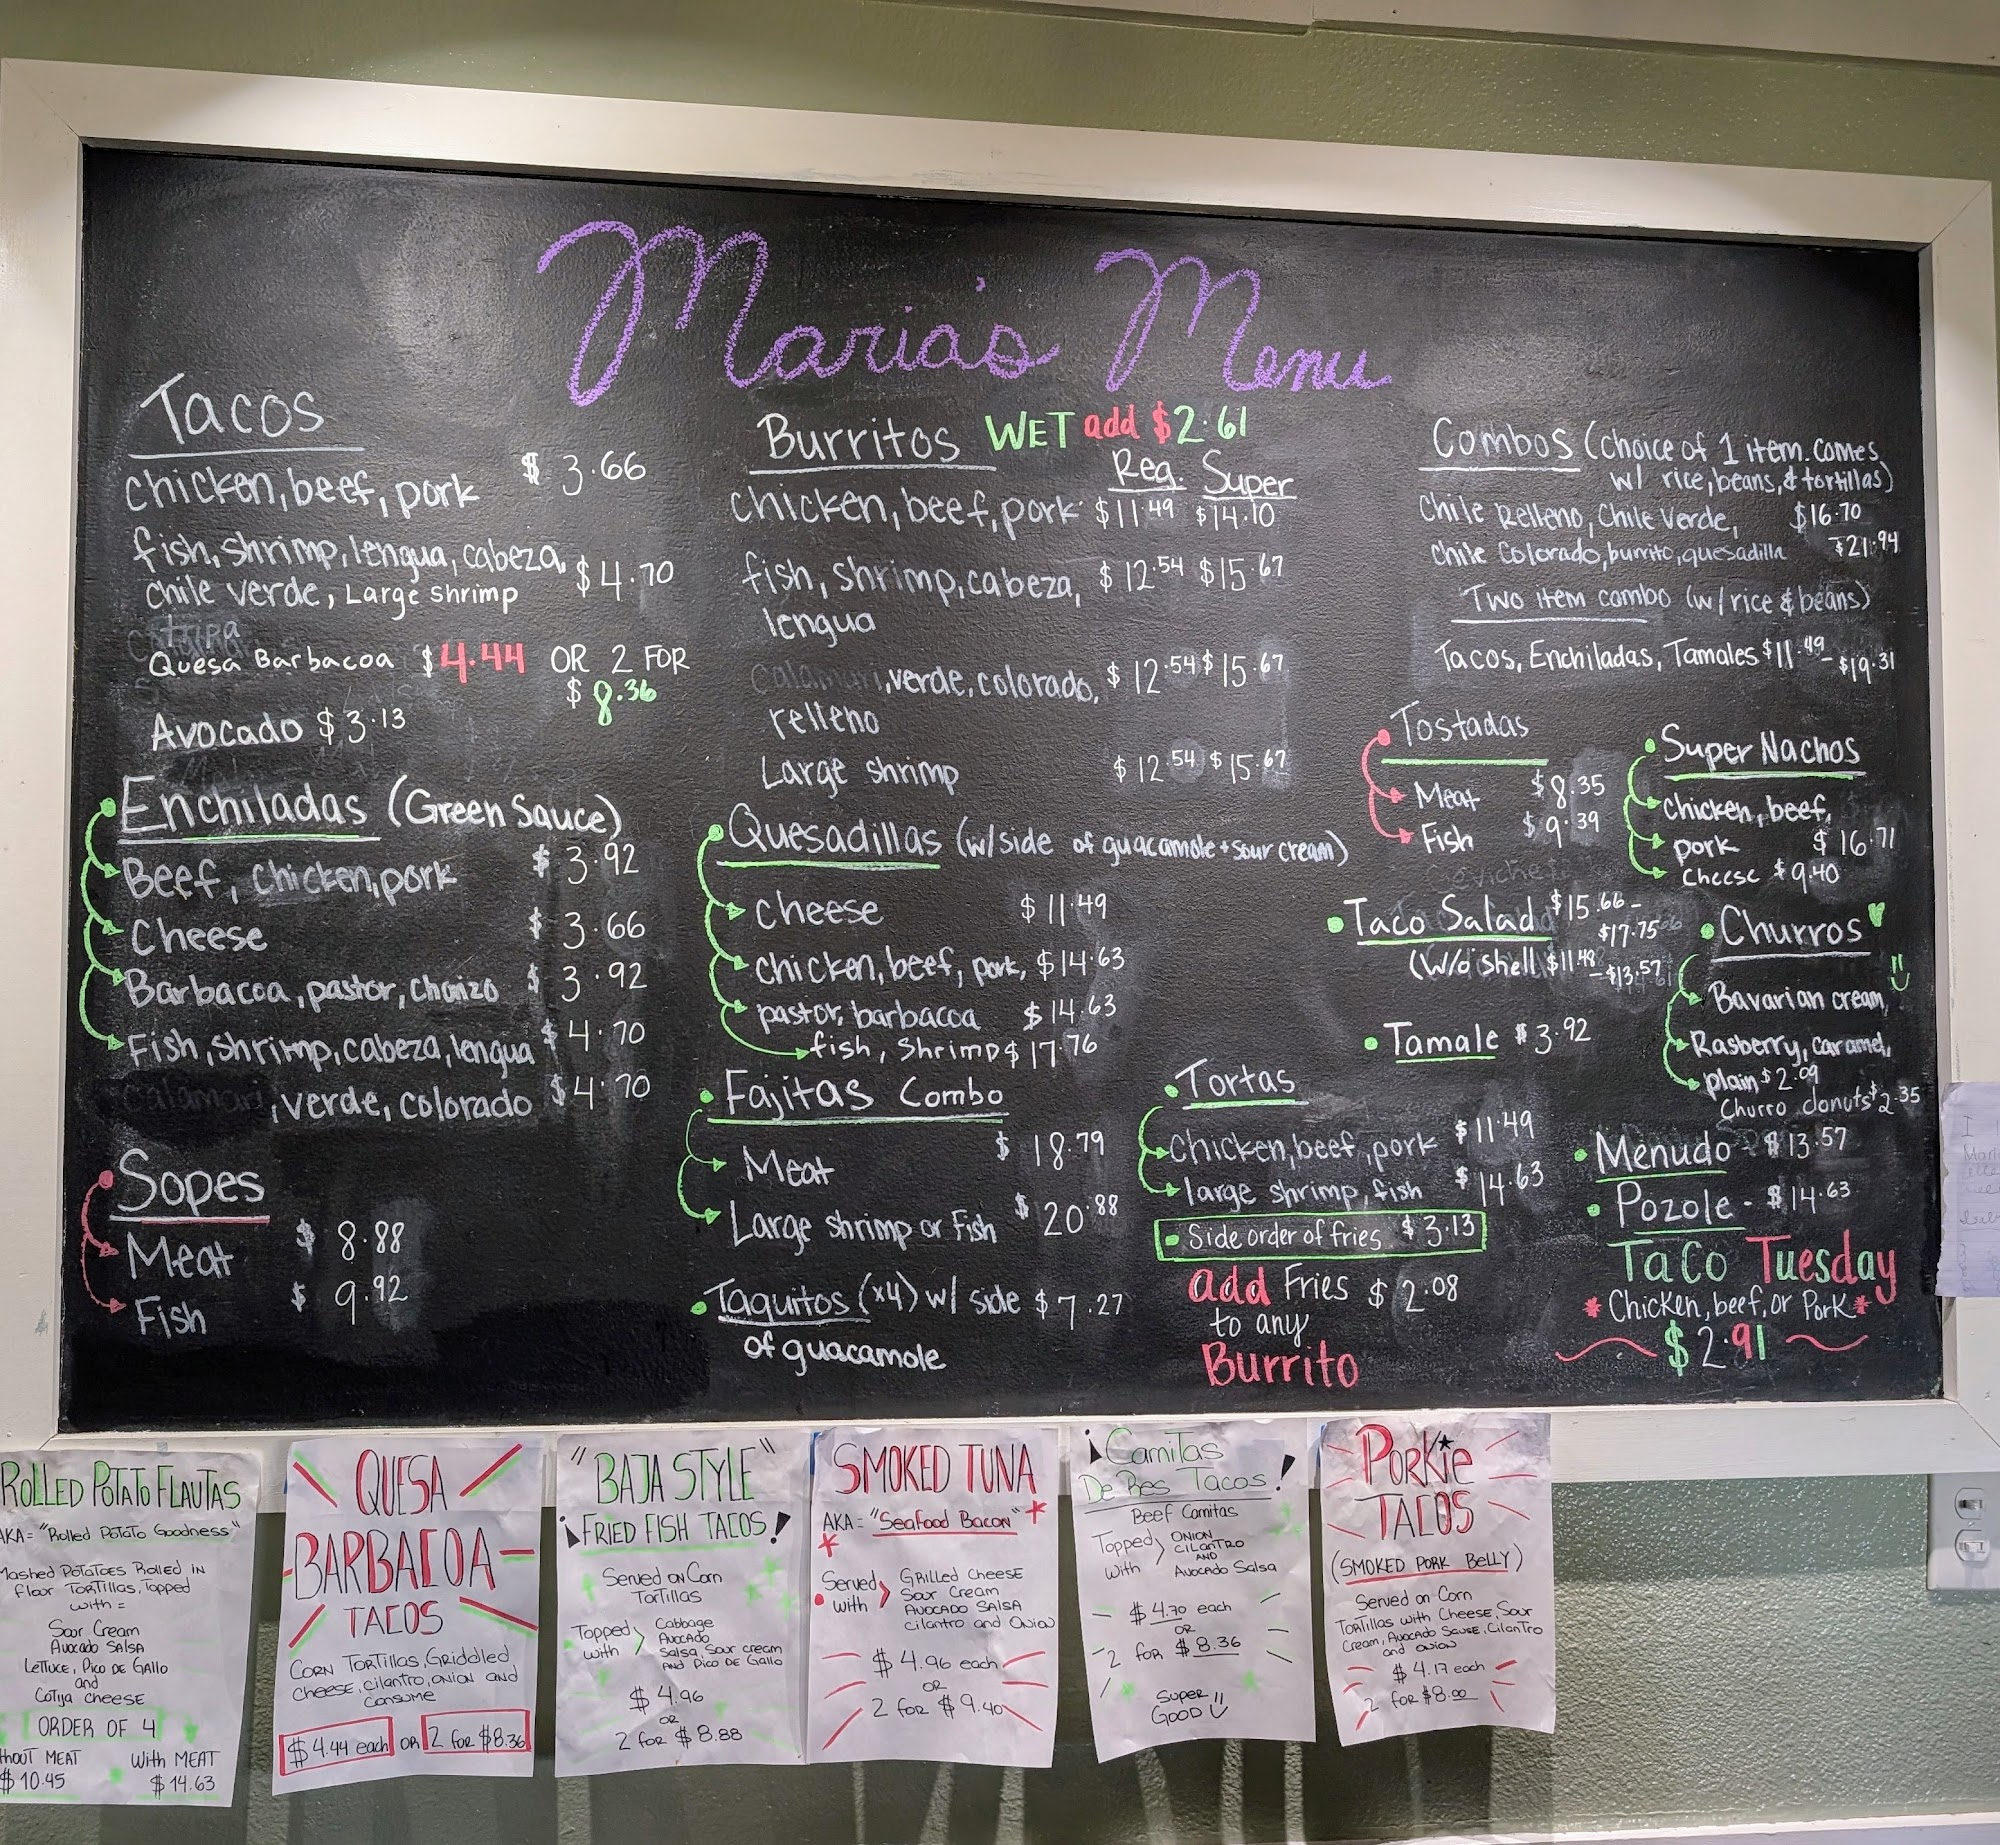 Maria's Menu
Tacos
chicken, beef, pork $3.66
fish, shrimp, lengua, cabeza,
chile verde, Large shrimp $4.70
tripa
Quesa Barbacoa $4.44 OR 2 FOR
$8.36
Avocado $3.13
Enchiladas (Green Sauce)
Beef, chicken, pork $3.92
Cheese $3.66
Barbacoa, pastor, chorizo $3.92
Fish, shrimp, cabeza, lengua $4.70
calamari, verde, colorado $4.70
Sopes
Meat $8.88
Fish $9.92
Burritos WET add $2.61
Reg. Super
chicken, beef, pork $11.49 $14.10
fish, shrimp, cabeza, $12.54 $15.67
lengua
calamari, verde, colorado, $12.54 $15.67
relleno
Large shrimp $12.54 $15.67
Quesadillas (w/side of guacamole + sour cream)
cheese $11.49
chicken, beef, pork, $14.63
pastor, barbacoa $14.63
fish, shrimp $17.76
Fajitas Combo
Meat $18.79
Large shrimp or fish $20.88
Taquitos (x4) w/ side $7.27
of guacamole
Combos (choice of 1 item. comes
w/ rice, beans, & tortillas)
Chile Relleno, Chile Verde, $16.70
Chile Colorado, burrito, quesadilla $21.94
Two item combo (w/rice & beans)
Tacos, Enchiladas, Tamales $11.49 - $19.31
Tostadas
Meat $8.35
Fish $9.39
Super Nachos
chicken, beef,
pork $16.71
cheese $9.40
Taco Salad $15.66 -
$17.75
(w/o shell $11.48 - $13.57
Tamale $3.92
Churros
Bavarian cream,
Rasberry, caramel,
plain $2.09
Churro donuts $2.35
Tortas
chicken, beef, pork $11.49
large shrimp, fish $14.63
Side order of fries $3.13
add Fries $2.08
to any
Burrito
Menudo - $13.57
Pozole - $14.63
Taco Tuesday
* Chicken, beef, or Pork *
$2.91
ROLLED POTATO FLAUTAS
AKA = "Rolled Potato Goodness"
Mashed Potatoes Rolled in
flour Tortillas, Topped
with =
Sour Cream
Avocado Salsa
Lettuce, Pico de Gallo
and
Cotija Cheese
ORDER OF 4
MEAT With MEAT
$10.45 $14.63
QUESA
BARBACOA
TACOS
Corn Tortillas, Griddled
Cheese, cilantro, onion and
Consume
$4.44 each OR 2 for $8.36
"BAJA STYLE"
¡FRIED FISH TACOS!
Served on Corn
Tortillas
Topped with > Cabbage
Avocado
Salsa, Sour cream
and Pico de Gallo
$4.96
OR
2 for $8.88
SMOKED TUNA
AKA = "Seafood Bacon"
Served with > Grilled Cheese
Sour Cream
Avocado Salsa
cilantro and Onion
$4.96 each
OR
2 for $9.40
¡Carnitas
De Res Tacos!
Beef Carnitas
Topped with > Onion
Cilantro
and
Avocado Salsa
$4.70 each
OR
2 for $8.36
Super
Good
PORKIE
TACOS
(SMOKED PORK BELLY)
Served on Corn
Tortillas with Cheese, Sour
Cream, Avocado Sauce, Cilantro
and onion
$4.17 each
2 for $8.00